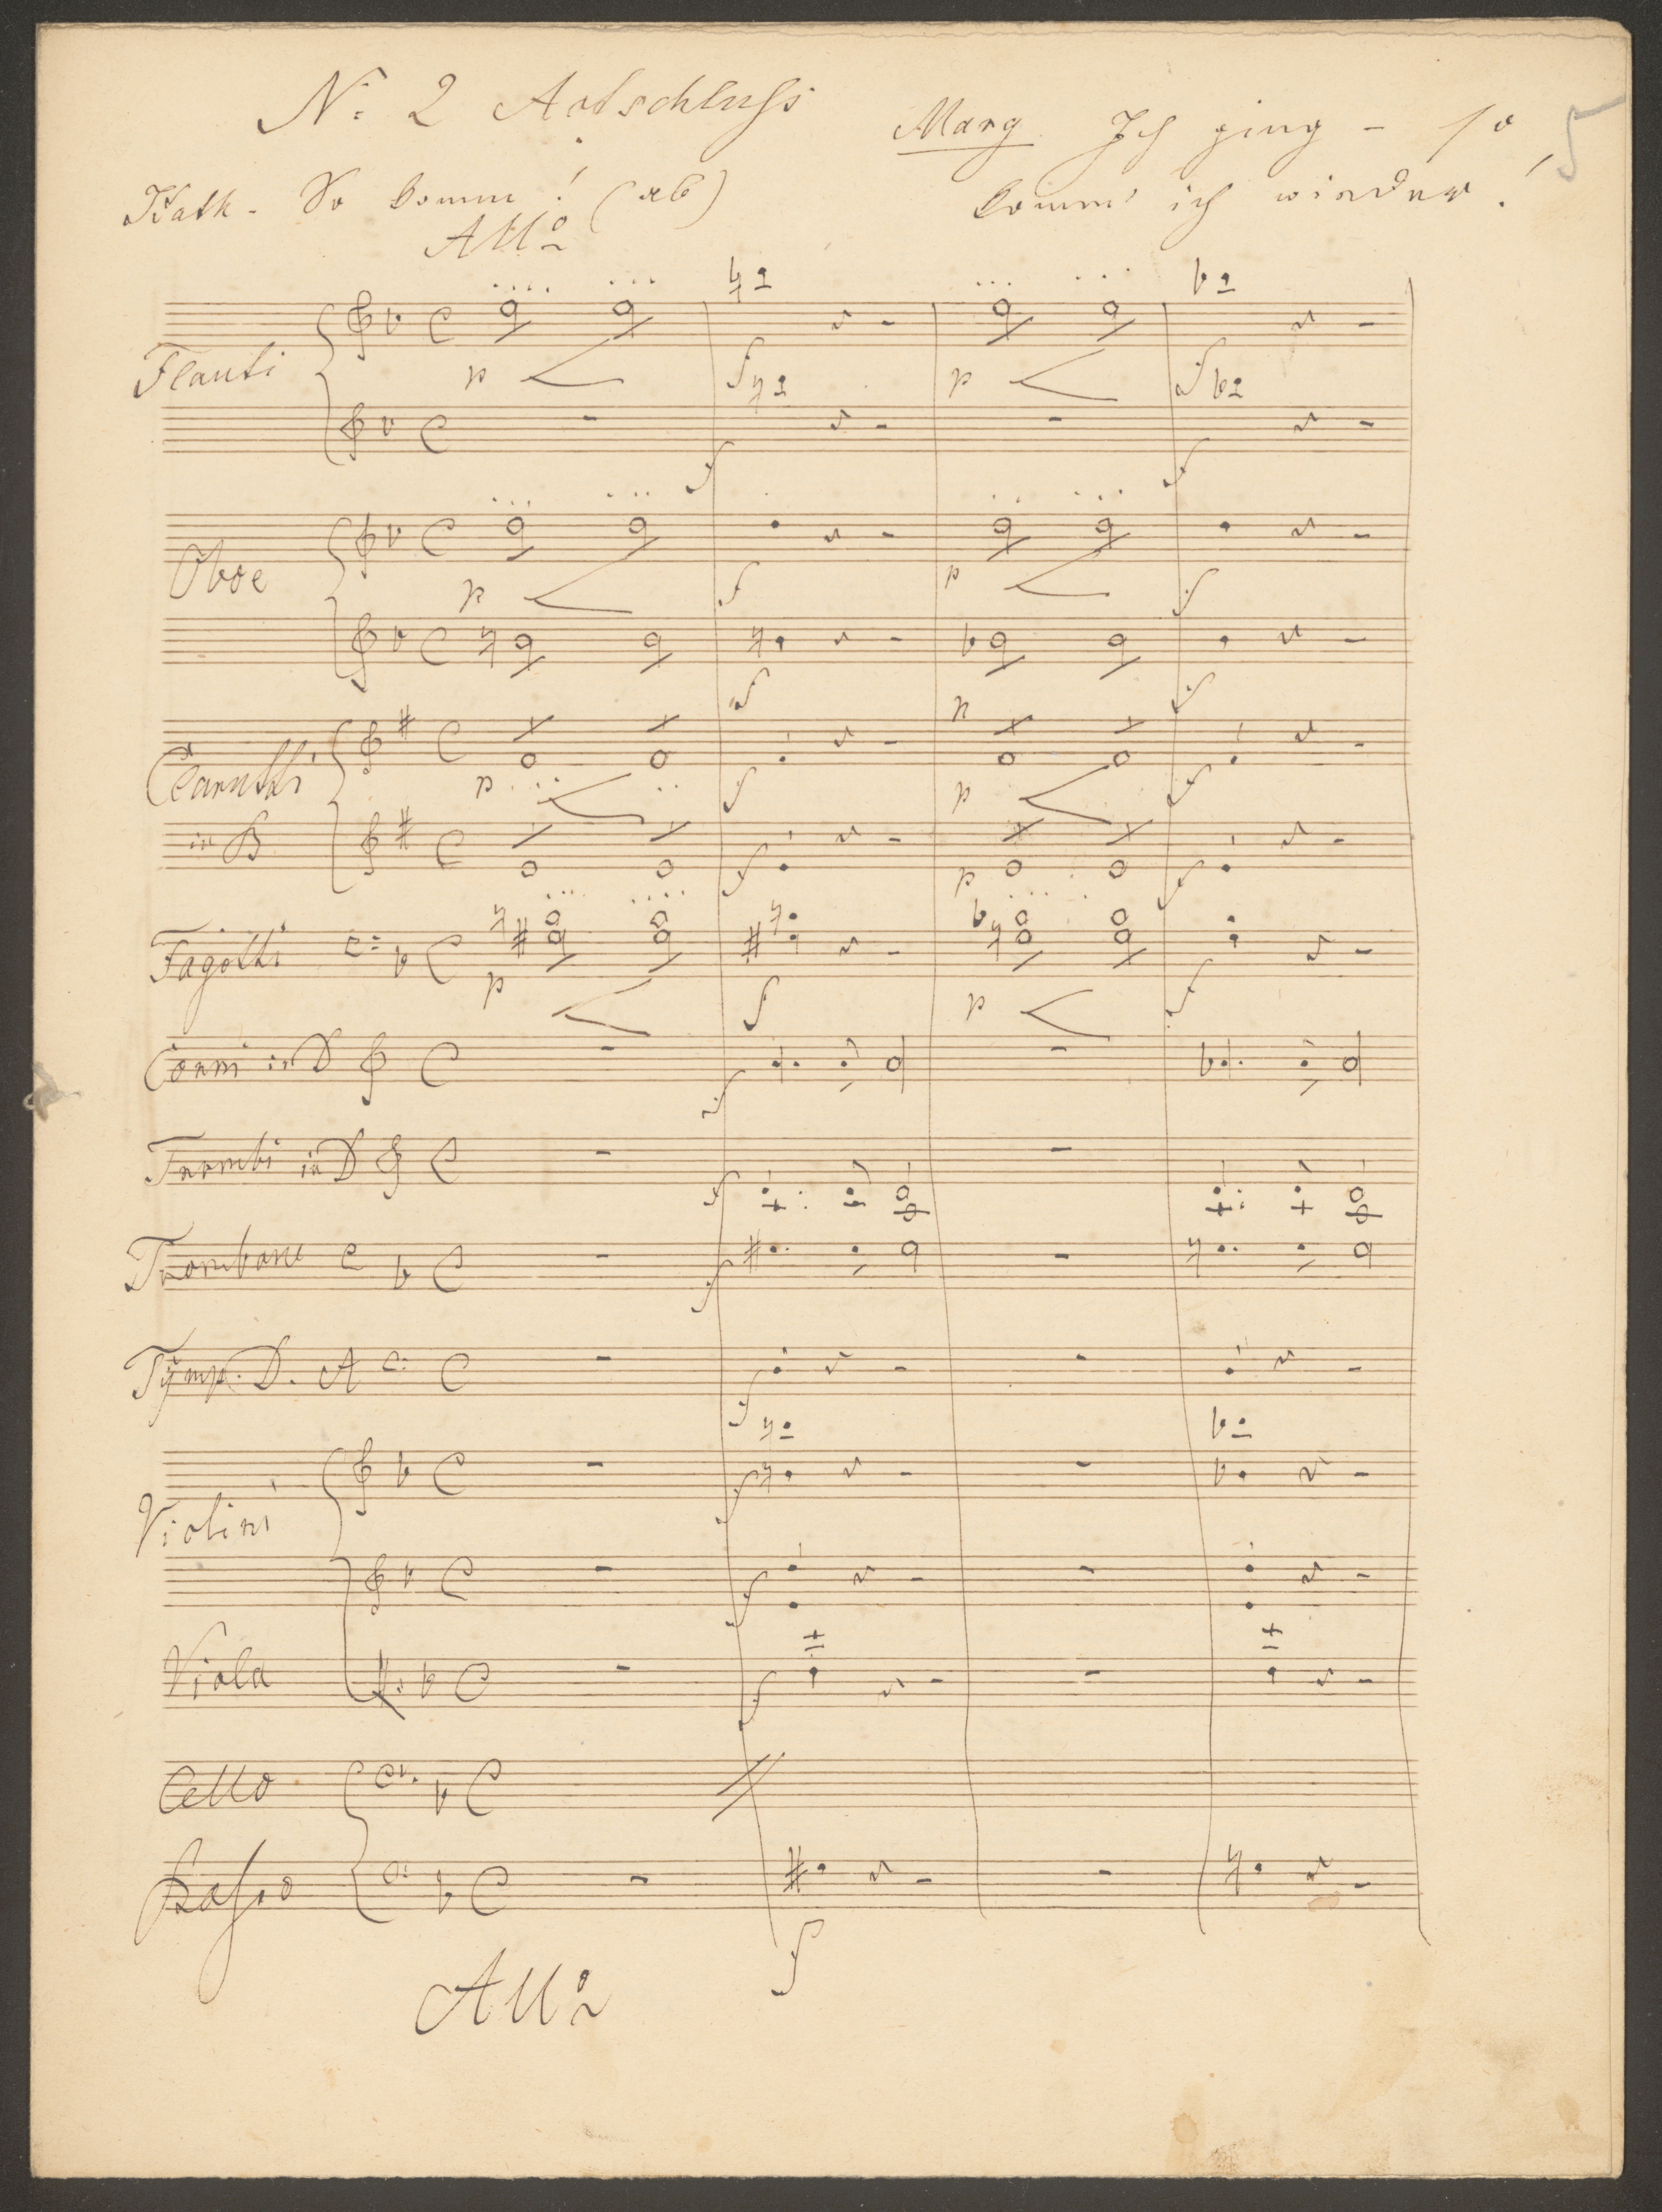 N: 2 Actschluss
Marg Ich ging - so
5
Kath. So komm! (ab)
komm' ich wieder!
Allo
p
f
p
f
Flauti
f
f
p
f
p
f
Oboe
f
p
f
Clarinetti
p
f
p
f
in B
f
p
f
Fagotti
p
f
p
f
Corni in D
f
Trombi in D
f
Trombone
f
Tÿmp. D. A
f
Violini
f
f
Viola
f
Cello
Basso
f
Allo